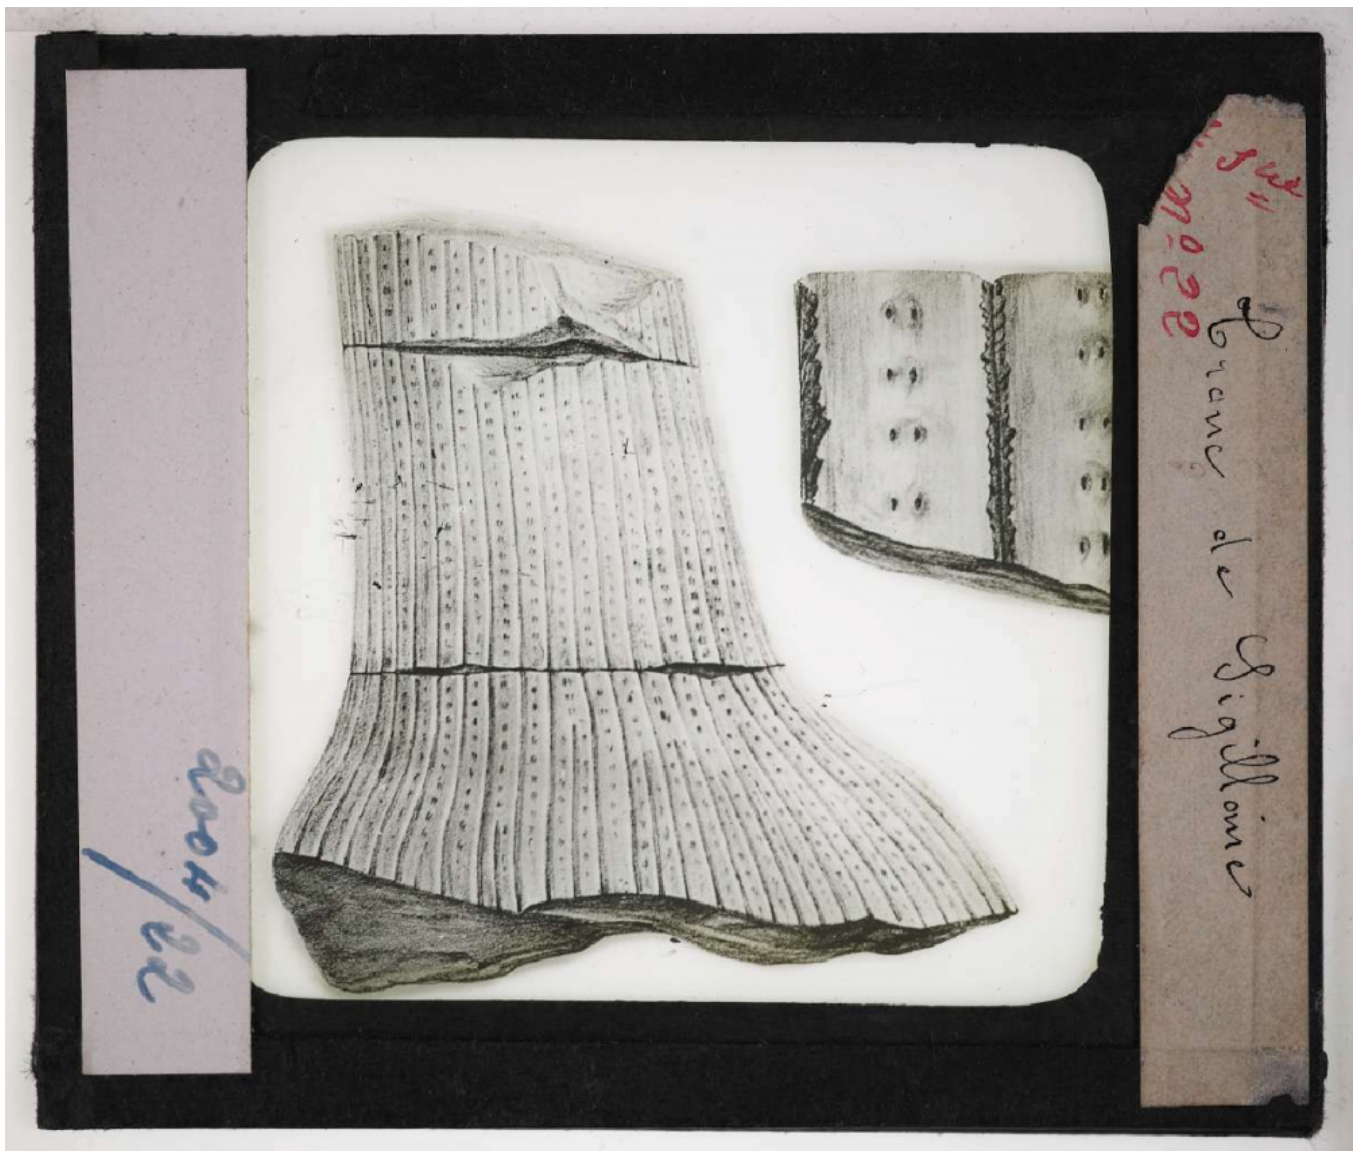 2004/22
n° 22
Tronc de Sigillaire